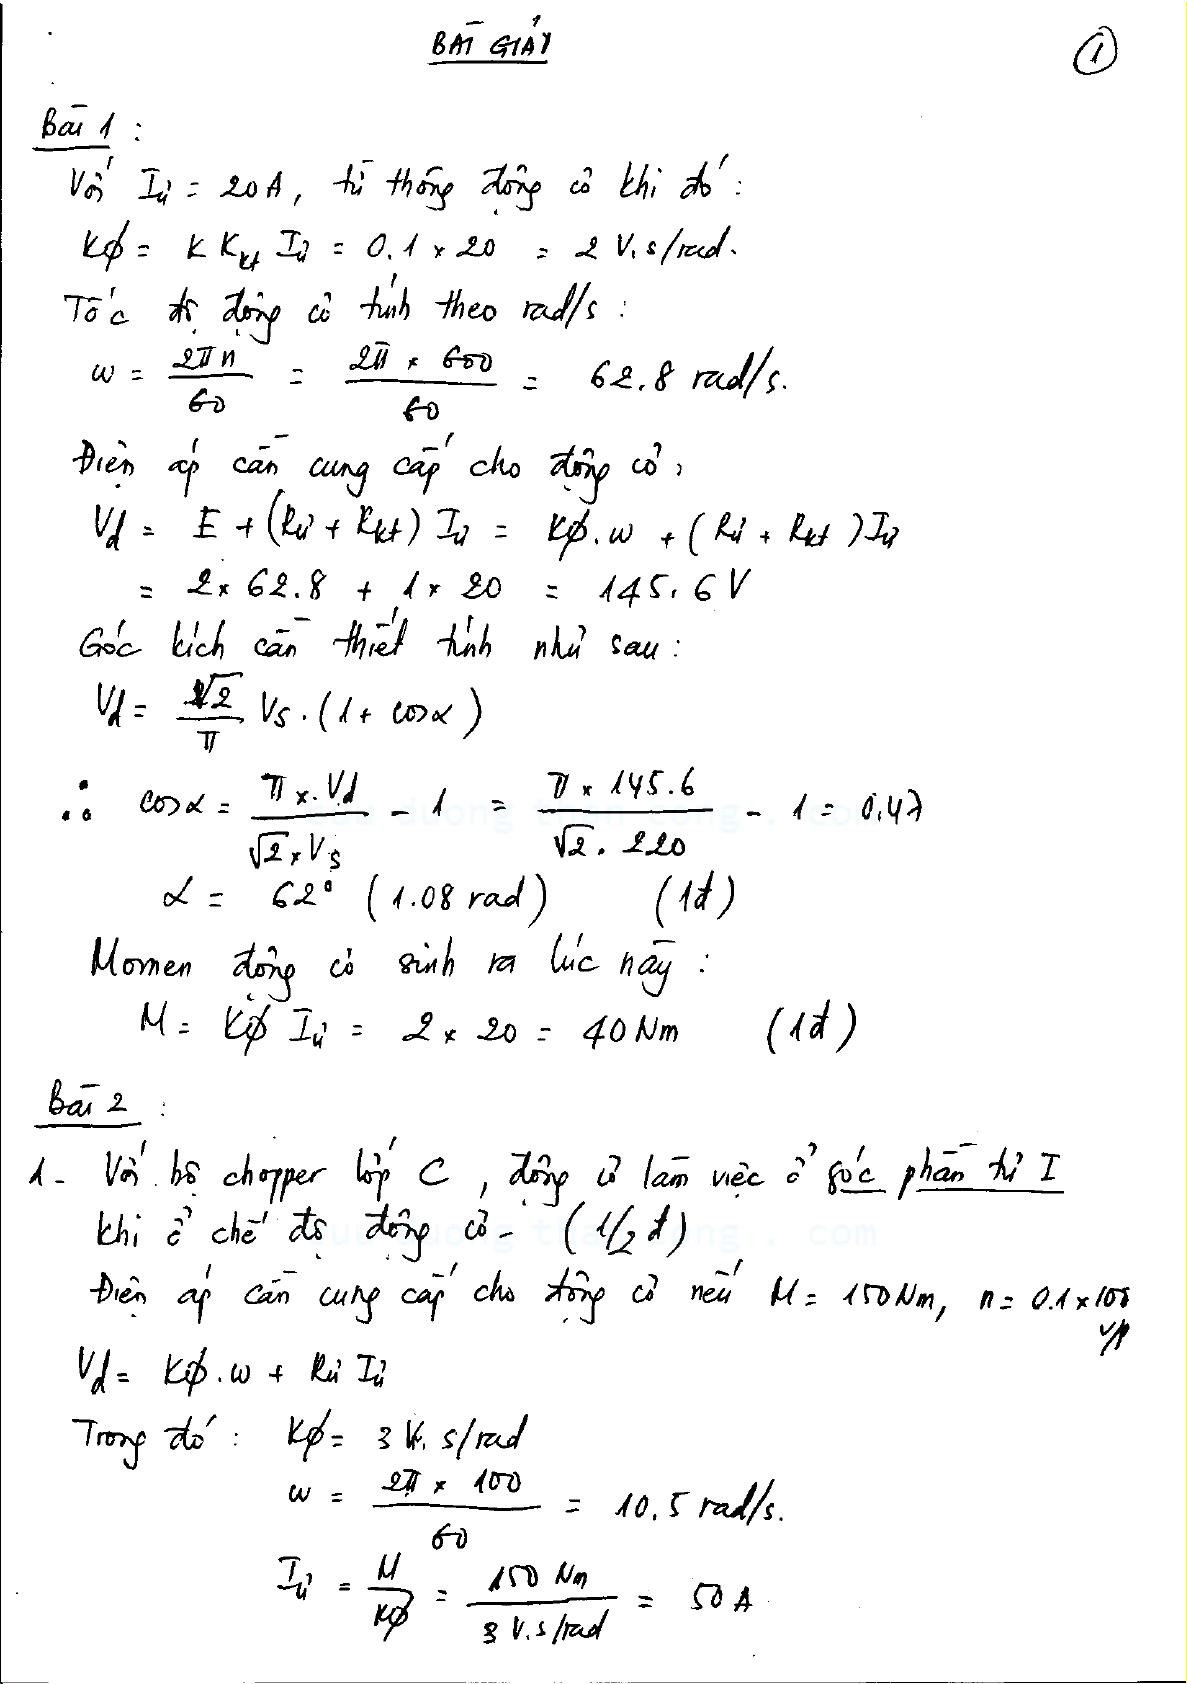 BÀI GIẢI
1
Bài 1 :
Với Iư = 20A, từ thông động cơ khi đó :
Kφ = K Kkt Iư = 0.1 × 20 = 2 V.s/rad.
Tốc độ động cơ tính theo rad/s :
ω = 2πn/60 = 2π × 600/60 = 62.8 rad/s.
Điện áp cần cung cấp cho động cơ :
Vd = E + (Rư + Rkt) Iư = Kφ.ω + (Rư + Rkt) Iư
= 2 × 62.8 + 1 × 20 = 145.6 V
Góc kích cần thiết tính như sau :
Vd = √2/π Vs . (1 + cosα)
∴ cosα = π × Vd/√2 × Vs - 1 = π × 145.6/√2 . 220 - 1 = 0.47
α = 62° (1.08 rad) (1đ)
Momen động cơ sinh ra lúc này :
M = Kφ Iư = 2 × 20 = 40 Nm (1đ)
Bài 2 :
1- Với bộ chopper lớp C, động cơ làm việc ở góc phần tư I
khi ở chế độ động cơ - (1/2 đ)
Điện áp cần cung cấp cho động cơ nếu M = 150 Nm, n = 0.1 × 100
v/p
Vd = Kφ.ω + Rư Iư
Trong đó : Kφ = 3 V.s/rad
ω = 2π × 100/60 = 10.5 rad/s.
Iư = M/Kφ = 150 Nm/3 V.s/rad = 50 A